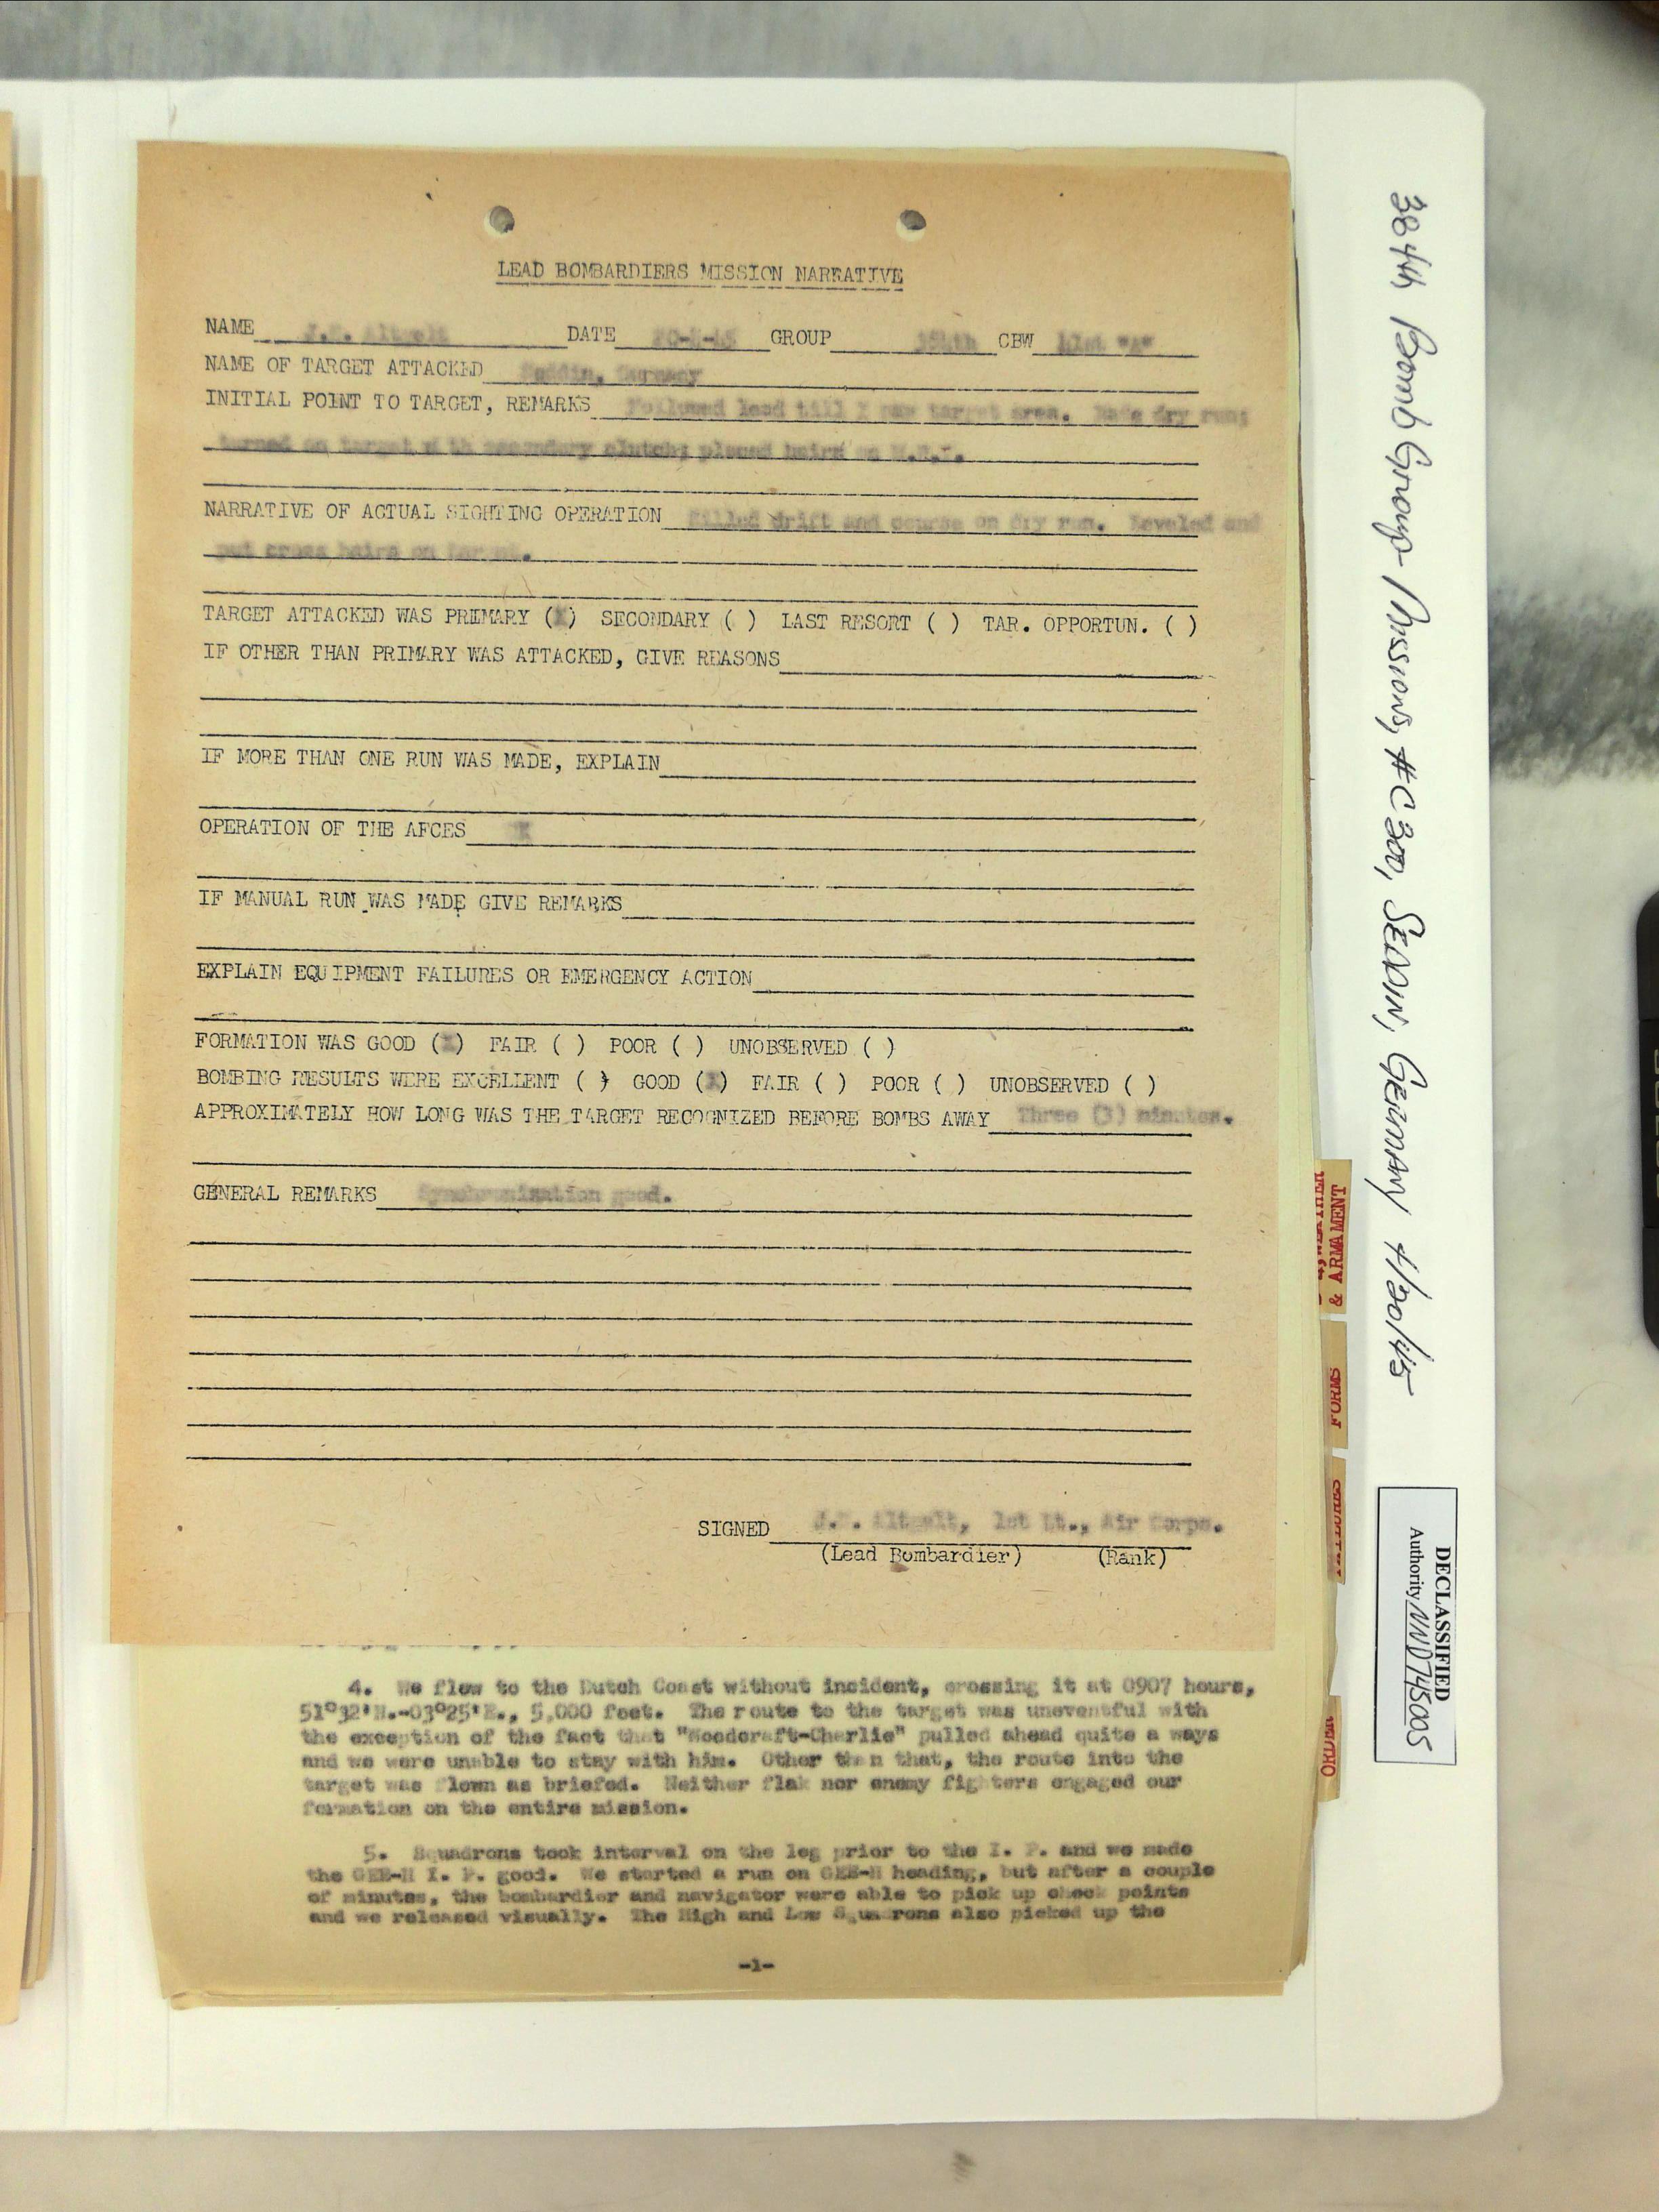 LEAD BOMBARDIERS MISSION NARRATIVE
NAME J.F. Altgelt DATE 20-4-45 GROUP 384th CBW 41st "A"
NAME OF TARGET ATTACKED Seddin, Germany
INITIAL POINT TO TARGET, REMARKS Followed lead till I saw target area. Made dry run;
turned on target with secondary clutch; placed hairs on M.P.I.
NARRATIVE OF ACTUAL SIGHTING OPERATION Killed drift and course on dry run. Leveled and
put cross hairs on target.
TARGET ATTACKED WAS PRIMARY (X) SECONDARY ( ) LAST RESORT ( ) TAR. OPPORTUN. ( )
IF OTHER THAN PRIMARY WAS ATTACKED, GIVE REASONS
IF MORE THAN ONE RUN WAS MADE, EXPLAIN
OPERATION OF THE AFCES X
IF MANUAL RUN WAS MADE GIVE REMARKS
EXPLAIN EQUIPMENT FAILURES OR EMERGENCY ACTION
FORMATION WAS GOOD (X) FAIR ( ) POOR ( ) UNOBSERVED ( )
BOMBING RESULTS WERE EXCELLENT ( ) GOOD (X) FAIR ( ) POOR ( ) UNOBSERVED ( )
APPROXIMATELY HOW LONG WAS THE TARGET RECOGNIZED BEFORE BOMBS AWAY Three (3) minutes.
GENERAL REMARKS Synchronization good.
SIGNED Altgelt, 1st Lt., Air Corps.
(Lead Bombardier) (Rank)
4. We flew to the Dutch Coast without incident, crossing it at 0907 hours,
51°32'N.-03°25'E., 5,000 feet. The route to the target was uneventful with
the exception of the fact that "Woodcraft-Charlie" pulled ahead quite a ways
and we were unable to stay with him. Other than that, the route into the
target was flown as briefed. Neither flak nor enemy fighters engaged our
formation on the entire mission.
5. Squadrons took interval on the leg prior to the I. P. and we made
the GEE-H I. P. good. We started a run on GEE-H heading, but after a couple
of minutes, the bombardier and navigator were able to pick up check points
and we released visually. The High and Low Squadrons also picked up the
-1-
384th Bomb Group- Mission #C300, SEDDIN, GERMANY 4/20/45
DECLASSIFIED
Authority NND745005
& ARMAMENT
FORMS
ORDER